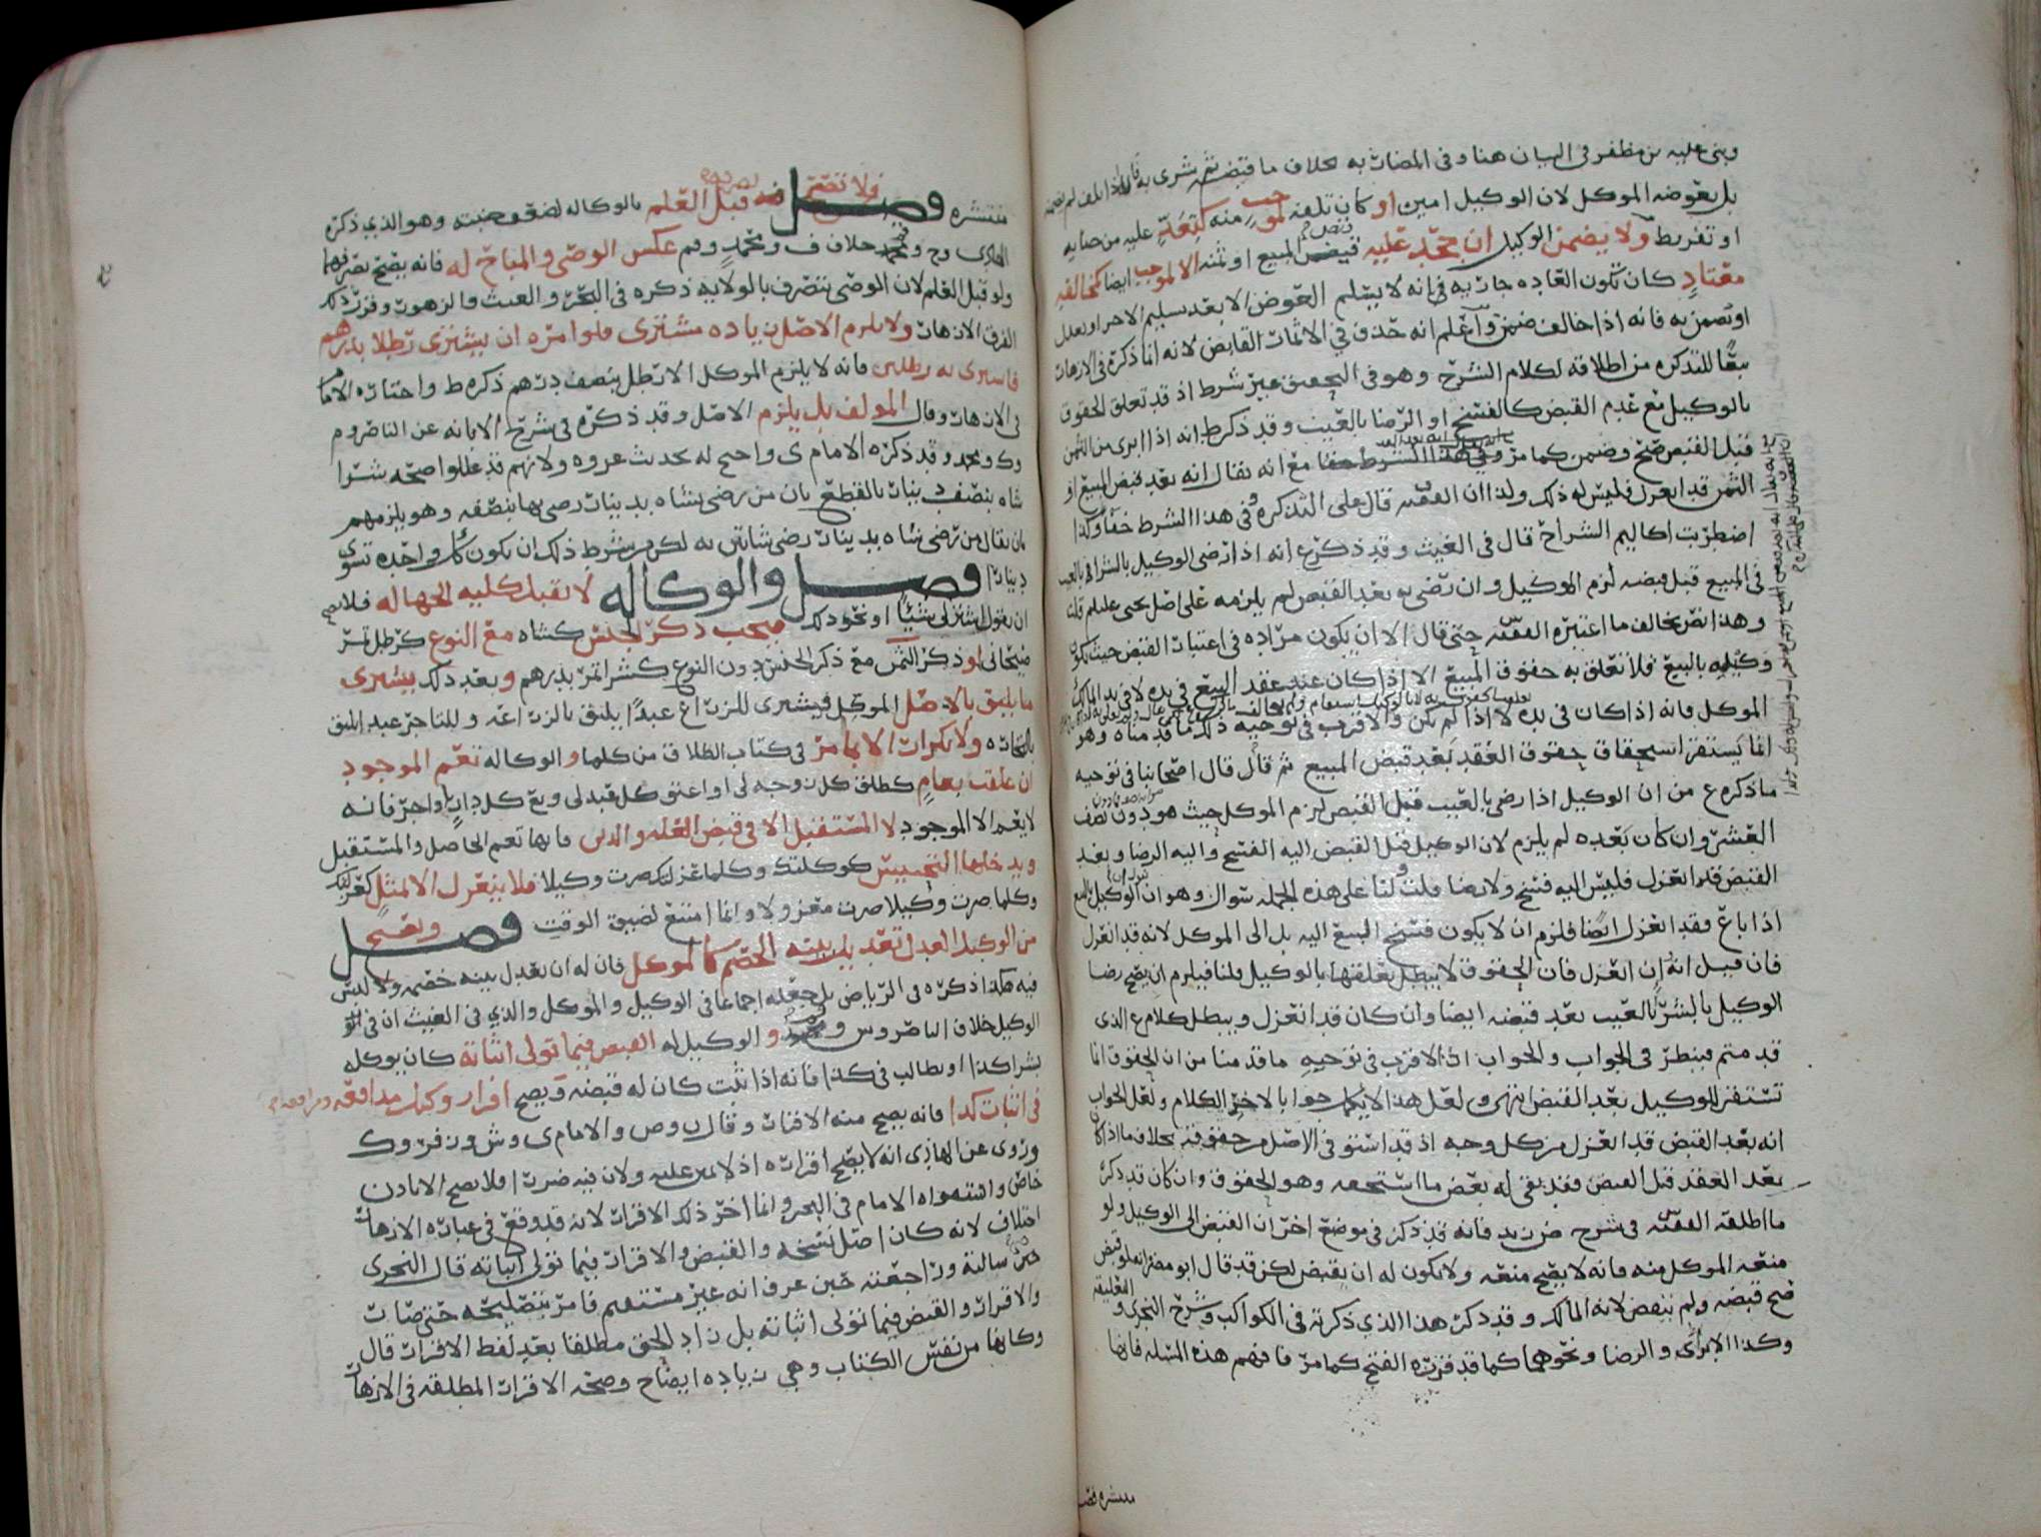 وبنى عليه بن مظفر في البيان هنا وفي المضاربه بخلاف ما قبضه ثم شرى به
بل بعوضه الموكل لان الوكيل امين او كان تلفه منه كبيعة عليه من صابه
او تفريط ولا يضمن الوكيل ان جحد عليه قبض المبيع او ثمنه الا لموجب ايضا
معتاد كان تكون العاده جاريه في انه لا يسلم العوض الا بعد تسليم الاخر
او تضمن به فانه اذا خالف ضمن واعلم انه حذف في الاثمار القابض لانه انما ذكره في الازهار
تبعًا للتذكره من اطلاقه لكلام الشرح وهو في التحقيق غير شرط اذ قد تعلق الحقوق
بالوكيل مع عدم القبض كالفسخ او الرضا بالعيب وقد ذكر ط انه اذا ابرى من الثمن
قبل القبض صح وضمن كما مر وفي هذا الشرط خفا مع انه يقال انه بعد قبض المبيع او
الثمن قد انعزل فليس له ذلك ولذا ان الفقيه قال على التذكره وفي هذا الشرط خفا وكذا
اضطربت اكاليم الشراح قال في الغيث وقد ذكر ع انه اذا رضى الوكيل بالشرا بالعيب
في المبيع قبل قبضه لزم الموكيل وان رضى به بعد القبض لم يلزمه على اصل يحيى علىلم قلت
وهذا نص يخالف ما اعتبره الفقيه حتى قال الا ان يكون مراده في اعتبار القبض حيث يكون
وكيله بالبيع فلا تعلق به حقوق المبيع الا اذا كان عند عقد البيع في يده لا في يد المالك
الموكل فانه اذا كان في يده لا اذا لم يكن والاقرب في توجيه ذلك ما قدمناه وهو
انما يستقر استحقاق حقوق العقد بعد قبض المبيع ثم قال قال اصحابنا في توجيه
ما ذكره ع من ان الوكيل اذا رضى بالعيب قبل القبض لزم الموكل حيث هو دون نصف
العشر وان كان بعده لم يلزم لان الوكيل قبل القبض اليه الفسخ واليه الرضا وبعد
القبض قد انعزل فليس اليه فسخ ولا رضا قلت ولنا على هذه الجمله سوال وهو ان الوكيل
اذا باع فقد انعزل ايضا فلزم ان لا يكون فسخ البيع اليه بل الى الموكل لانه قد انعزل
فان قيل انه ان انعزل فان الحقوق لا يبطل تعلقها بالوكيل قلنا فيلزم ان يصح رضا
الوكيل بالشرا بالعيب بعد قبضه ايضا وان كان قد انعزل ويبطل كلام ع الذي
قد متم فينظر في الجواب والجواب ان الاقرب في توجيهه ما قدمنا من ان الحقوق انما
تستقر للوكيل بعد القبض انتهى ولعل هذا لا يكمل جوابا لاخر الكلام ولعل الجواب
انه بعد القبض قد انعزل من كل وجه اذ قد استوفى الاصل حقوقه بخلاف ما اذا كان
بعد العقد قبل القبض فقد بقى له بعض ما استحقه وهو الحقوق وان كان قد ذكر
ما اطلقه الفقيه في شرح ض زيد فانه قد ذكر في موضع اخر ان القبض الى الوكيل ولو
منعه الموكل منه فانه لا يصح منعه ولا يكون له ان يقبض لكن قد قال ابو مضر انه لو قبض
صح قبضه ولم ينقض لانه المالك وقد ذكر هذا الذي ذكرته في الكواكب وشرح النجري و التعليقه
وكذا الابرا والرضا ونحوهما كما قد قرره الفتح كما مر فافهم هذه المسله فانها
منتشره فصل
منتشره فصل فلا تصح قبل العلم بالوكاله لضعف وهو الذي ذكره
الهادي وح ومحمد خلاف ف ومحمد وقم عكس الوصى والمباح له فانه يصح تصرفهما
ولو قبل العلم لان الوصى يتصرف بالولايه ذكره في البحر والغيث والزهور
الفرق الازهار ولا يلزم الاصل زياده مشترى فلو امره ان يشترى رطلا بدرهم
فاشترى به رطلين فانه لا يلزم الموكل الا رطل بنصف درهم ذكره ط واختاره الامام
في الازهار وقال المولف بل يلزم الاصل وقد ذكره في شرح الابانه عن الناصر وم
وك ومحمد وقد ذكره الامام ي واحتج له بحديث عروه ولانهم قد عللوا صحه شرا
شاه بنصف دينار بالقطع بان من رضى بشاه بدينار رضى بها بنصفه وهو يلزمهم
بان يقال من رضى بشاه بدينار رضى بشاتين به لكن بشرط ذلك ان يكون كل واحده تسوى
دينارا فصل والوكاله لا تقبل كليه الجهاله فلا يصح
ان يقول اشتر لى شيئًا او نحو ذلك فيجب ذكر جنس كشاه مع النوع كرطل تمر
صيحانى او ذكر الثمن مع ذكر الجنس دون النوع كشرا تمر بدرهم وبعد ذلك يشترى
ما يليق بالاصل الموكل فيشترى للزراع عبدًا يليق بالزراعه وللتاجر عبد يليق
بالتجاره ولا تكرار الا بما مر في كتاب الطلاق من كلما والوكاله تعم الموجود
ان علقت بعام كطلق كل زوجه لى او اعتق كل عبد لى وبع كل دار او اجر فانه
لا يعم الا الموجود لا المستقبل الا في قبض الغله والدين فانها تعم الحاصل والمستقبل
ويدخلها التحبيس كوكلتك وكلما عزلتك صرت وكيلا فلا ينعزل الا بمثل كعزلتك
وكلما صرت وكيلا صرت معزولا وانما امتنع لضيق الوقت فصل ويصح
من الوكيل العدل تعديل بينه الخصم كالموكل فان له ان يعدل بينه خصمه ولا لبس
فيه هكذا ذكره في الرياض بل جعله اجماعا في الوكيل والموكل والذي في الغيث ان في
الوكيل خلاف الناصر وس ومحمد والوكيل له القبض فيما تولى اثباته كان يوكله
بشرا كذا او يطالب في كذا فانه اذا ثبت كان له قبضه ويصح اقرار وكيل مدافعه ومرافعه
في اثبات كذا فانه يصح منه الاقرار وقال ن وص والامام ي وش وزفر وك
وروى عن الهادى انه لا يصح اقراره اذ لا يمين عليه ولان فيه ضررا فلا يصح الا باذن
خاص واستقواه الامام في البحر وانما اخر ذلك الاقرار لانه قد وقع في عباره الازهار
اختلاف لانه كان اصل نسخه والقبض والاقرار فيما تولى اثباته قال النجرى
حين سالته وراجعته حين عرف انه غير مستقيم فامر بتصليحه حتى صار
والاقرار والقبض فيما تولى اثباته بل زاد الحق مطلقا بعد لفظ الاقرار قال
وكانها من نفس الكتاب وهي زياده ايضاح وصحه الاقرار المطلقه في الازهار